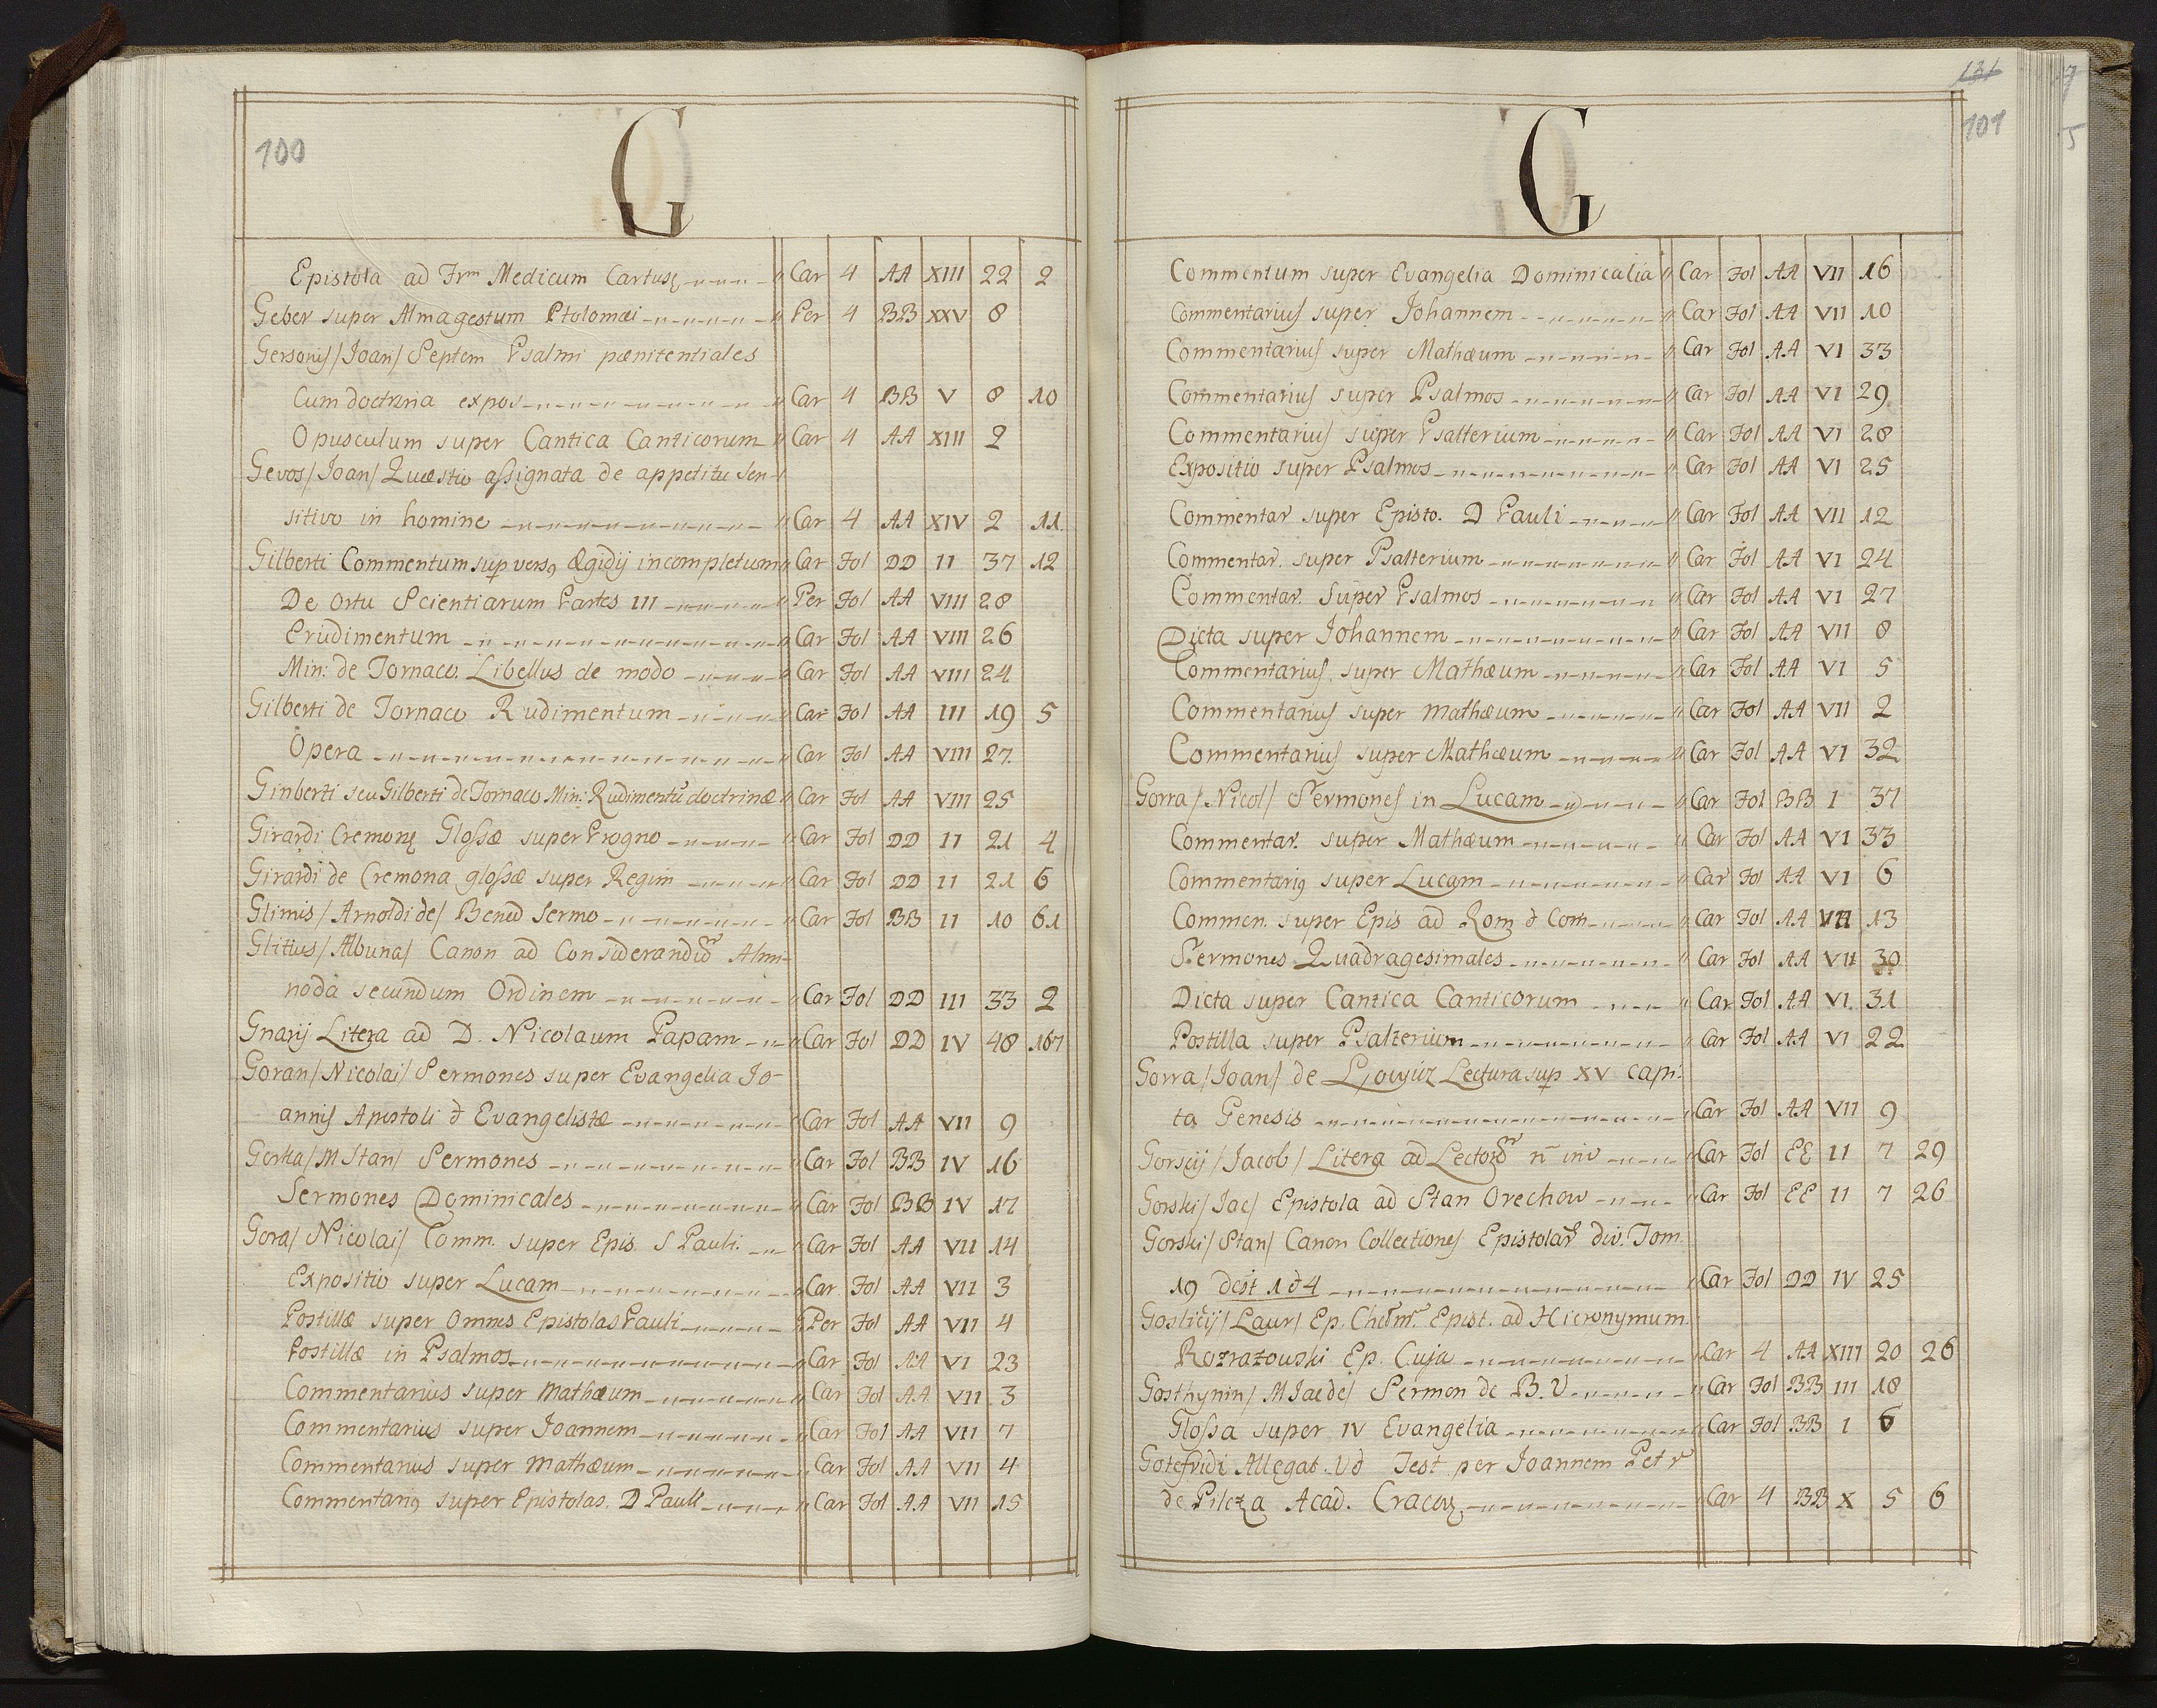 100
G
Epistola ad Frm Medicum Cartusę " Car 4 AA XIII 22 2
Geber super Almagestum Ptolomæi " Per 4 BB XXV 8
Gersonis/Joan/ Septem Psalmi pænitentiales
Cum doctrina expos " Car 4 BB V 8 10
Opusculum super Cantica Canticorum " Car 4 AA XIII 2
Gevos/Joan/ Quæstio assignata de appetitu sen-
sitivo in homine " Car 4 AA XIV 2 11
Gilberti Commentum sup versꝯ Ægidij incompletum " Car Fol DD II 37 12
De Ortu Scientiarum Partes III " Per Fol AA VIII 28
Erudimentum " Car Fol AA VIII 26
Min: de Tornaco. Libellus de modo " Car Fol AA VIII 24
Gilberti de Tornaco Rudimentum " Car Fol AA III 19 5
Opera " Car Fol AA VIII 27
Ginberti seu Gilberti de Tornaco Min: Rudimentū doctrinæ " Car Fol AA VIII 25
Girardi Cremonę Glossæ super Progno " Car Fol DD II 21 4
Girardi de Cremona glossæ super Regim " Car Fol DD II 21 6
Glimis/Arnoldi de/ Bened Sermo " Car Fol BB II 10 61
Glitius/Albuna/ Canon ad Considerandū Alm-
noda secundum Ordinem " Car Fol DD III 33 2
Gnarij Litera ad D. Nicolaum Papam " Car Fol DD IV 48 167
Goran/Nicolai/ Sermones super Evangelia Jo-
annis Apostoli & Evangelistæ " Car Fol AA VII 9
Gorka/M Stan/ Sermones " Car Fol BB IV 16
Sermones Dominicales " Car Fol BB IV 17
Gora/ Nicolai/ Comm. super Epis. S Pauli. " Car Fol AA VII 14
Expositio super Lucam " Car Fol AA VII 3
Postillæ super Omnes Epistolas Pauli " Per Fol AA VII 4
Postillæ in Psalmos " Car Fol AA VI 23
Commentarius super Mathæum " Car Fol AA VII 3
Commentarius super Joannem " Car Fol AA VII 7
Commentarius super Mathæum " Car Fol AA VII 4
Commentariꝯ super Epistolas. D Pauli " Car Fol AA VII 15
131
101
G
Commentum super Evangelia Dominicalia " Car Fol AA VII 16
Commentarius super Johannem " Car Fol AA VII 10
Commentarius super Mathæum " Car Fol AA VI 33
Commentarius super Psalmos " Car Fol AA VI 29
Commentarius super Psalterium " Car Fol AA VI 28
Expositio super Psalmos " Car Fol AA VI 25
Commentar super Episto. D Pauli " Car Fol AA VII 12
Commentar. super Psalterium " Car Fol AA VI 24
Commentar. Super Psalmos " Car Fol AA VI 27
Dicta super Johannem " Car Fol AA VII 8
Commentarius super Mathæum " Car Fol AA VI 5
Commentarius super Mathæum " Car Fol AA VII 2
Commentarius super Mathæum " Car Fol AA VI 32
Gorra/Nicol/ Sermones in Lucam " Car Fol BB I 37
Commentar. super Mathæum " Car Fol AA VI 33
Commentariꝯ super Lucam " Car Fol AA VI 6
Commen. super Epis ad Rom & Com " Car Fol AA VII 13
Sermones Quadragesimales " Car Fol AA VII 30
Dicta super Cantica Canticorum " Car Fol AA VI 31
Postilla super Psalterium " Car Fol AA VI 22
Gorra/Joan/ de Lectura sup XV capi:
ta Genesis " Car Fol AA VII 9
Gorscij/Jacob/ Litera ad n̄ inv " Car Fol EE II 7 29
Gorski/Jac/ Epistola ad Stan Orechow " Car Fol EE II 7 26
Gorski/Stan/ Canon Collectiones Epistolar div. Tom.
19 dest 1 & 4 " Car Fol DD IV 25
Goslicij/Laur/ Ep. Epist. ad Hieronymum
Rozrażowski Ep. Cuja " Car 4 AA XIII 20 26
Gosthynin/M Jac de/ Sermon de B. V " Car Fol BB III 18
Glossa super IV Evangelia " Car Fol BB I 6
Gotefridi Allegat. Vd Test per Joannem Petr
de Pilcza Acad. Cracov " Car 4 BB X 5 6